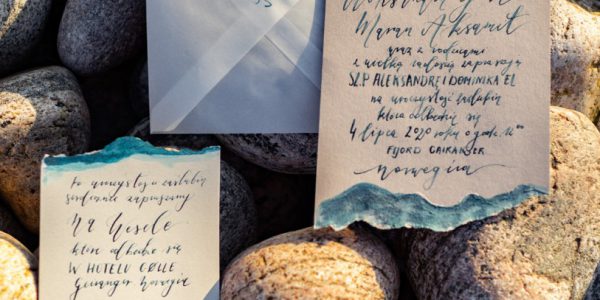 Aksamit
wraz z rodzicami
z wielką radością zapraszają
SZ.P ALEKSANDRĘ I DOMINIKA EL
na uroczystość zaślubin
która odbędzie się
4 lipca 2020 roku o godz.
FJORD
Norwegia
Po uroczystości zaślubin
serdecznie zapraszamy
Na Wesele
które odbędzie się
W HOTELU
Geiranger Norwegia